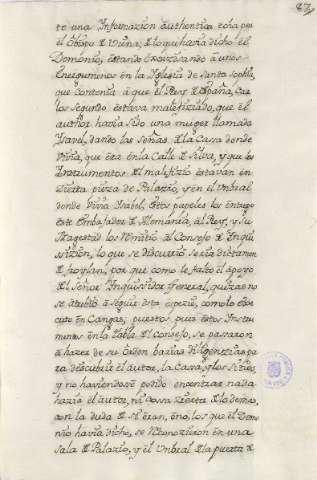 87
te una Informazion authentica echa por
el Obispo de Viena, de lo que havia dicho el
Demonio, estando Exorzizando à unos
Energumenos en la Iglesia de Santa Sophia,
que contenia â que el Rey de España, Car
los Segundo estava malefiziado, que el
author havia sido una muger llamada
Ysavel, dando las señas de la Casa donde
vivia, que era en la Calle de Silva, y que los
Instrumentos del malefizio estavan en
zierta pieza de Palazio, y en el Umbral
donde vivia Ysabel. Estos papeles los entrego
este Embajador de Alemania, al Rey, y Su
Magestad los remitio al Consejo de Inqui
sizion, lo que se discurrio seria dictamen
de froylan, por que como le faltó el apoyo
del Señor Inquisidor General, quizas no
se atrebió à seguir esta espezie, como lo ejec
cuto en Cangas; puestos pues estos Instru
mentos en la tabla del Consejo, se pasaron
à hazer de su orden barias diligenzias pa
ra descubrir el autor, la Casa, y los Sitios,
y no haviendose podido encontrar nada
hazia el autor, ni cosa zierta de lo demas,
con la duda de si eran, ô no, los que el Demo
nio havia dicho, se reconozieron en una
sala de Palazio, y el Umbral de la puerta de